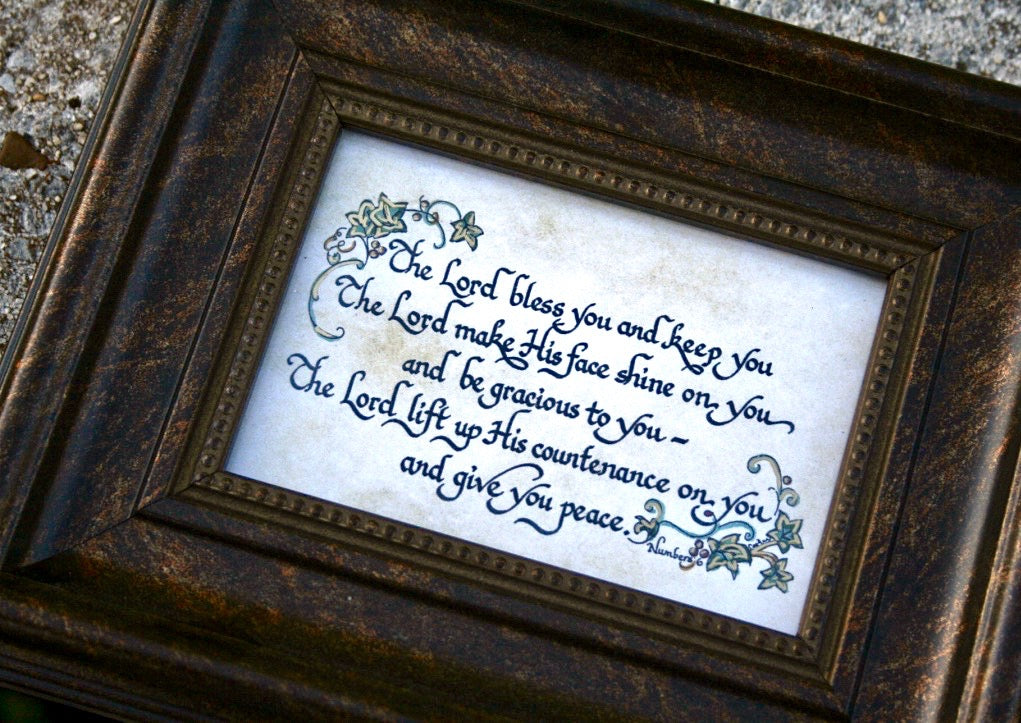 The Lord bless you and keep you
The Lord make His face shine on you
and be gracious to you –
The Lord lift up His countenance on you
and give you peace.
Numbers